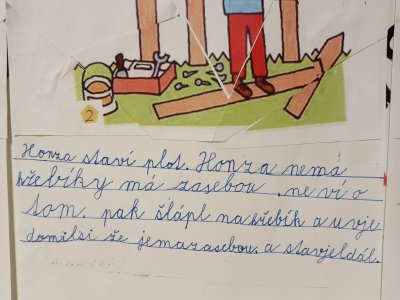 2
Honza staví plot. Honza nemá
hřebíky má zasebou . neví o
tom. pak šlápl na hřebík a uvje
domilsi že jemazasebou. a stavjeldál.